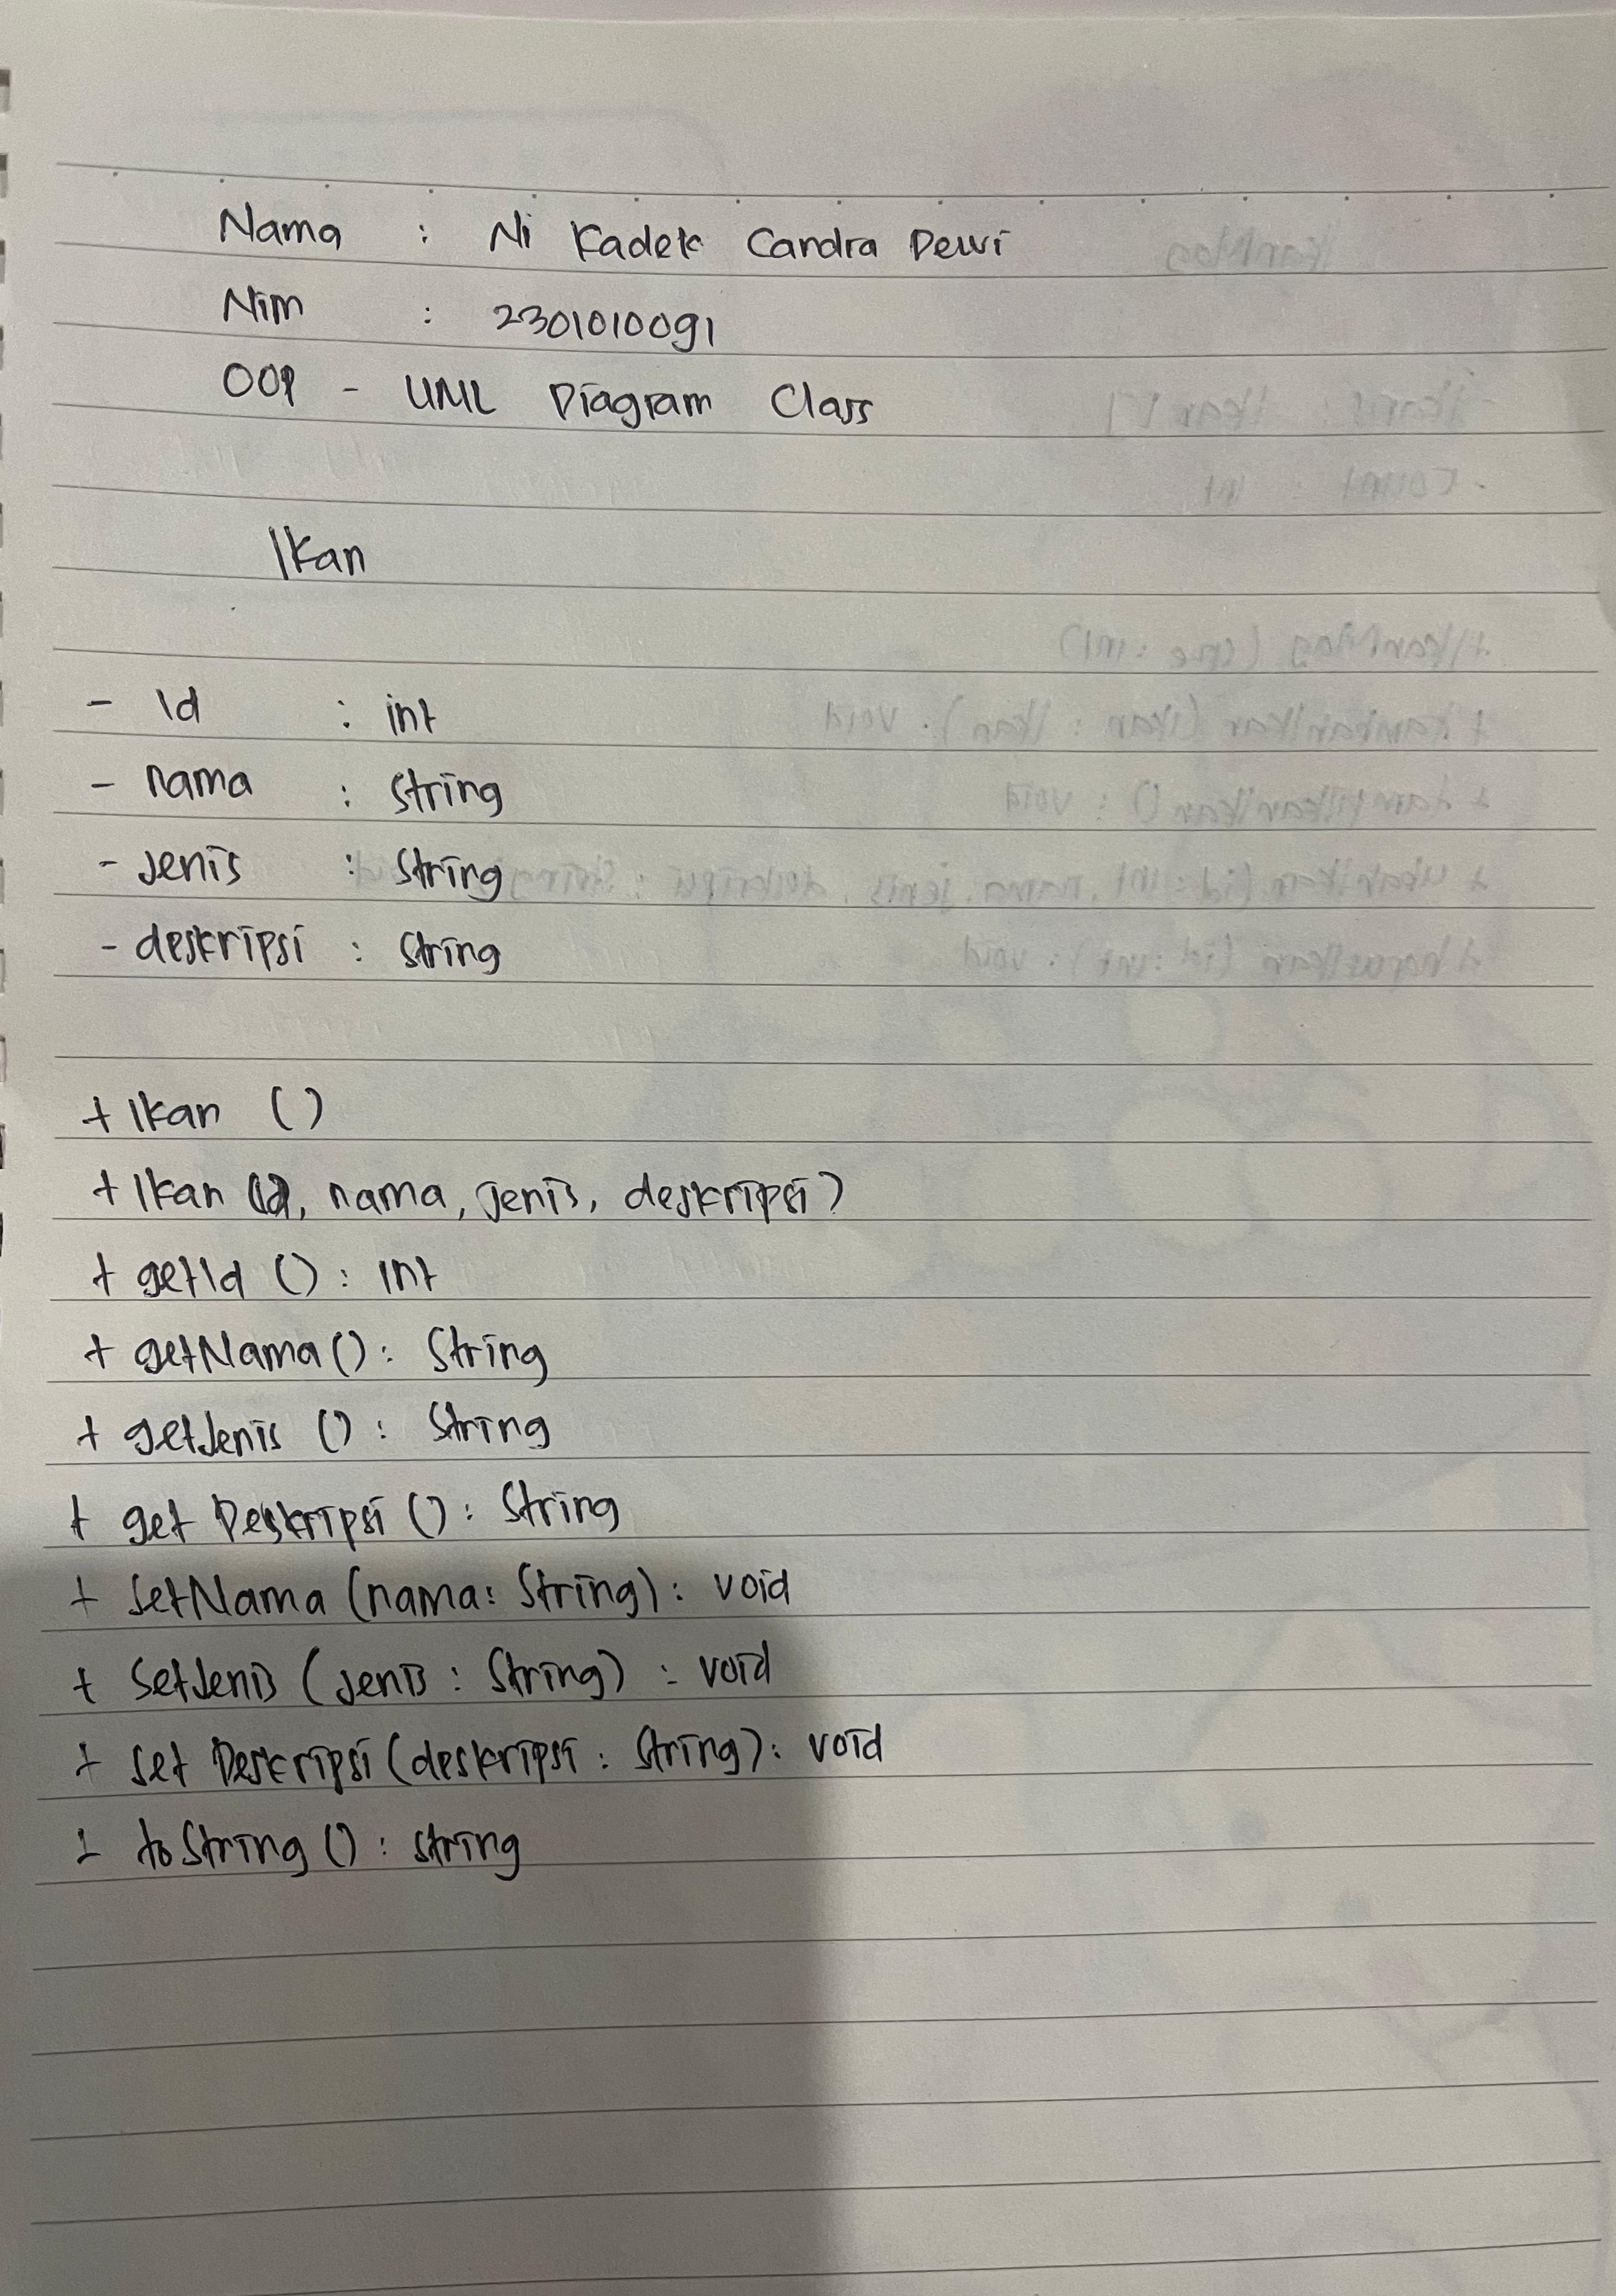 Nama : Ni Kadek Candra Dewi
Nim : 2301010091
OOP - UML Diagram Class
Ikan
- Id : int
- nama : String
- Jenis : String
- deskripsi : String
+ Ikan ()
+ Ikan (Id, nama, jenis, deskripsi)
+ getId () : Int
+ getNama () : String
+ getJenis () : String
+ get Deskripsi () : String
+ SetNama (nama : String) : void
+ SetJenis (jenis : String) : void
+ Set Deskripsi (deskripsi : String) : void
+ toString () : String